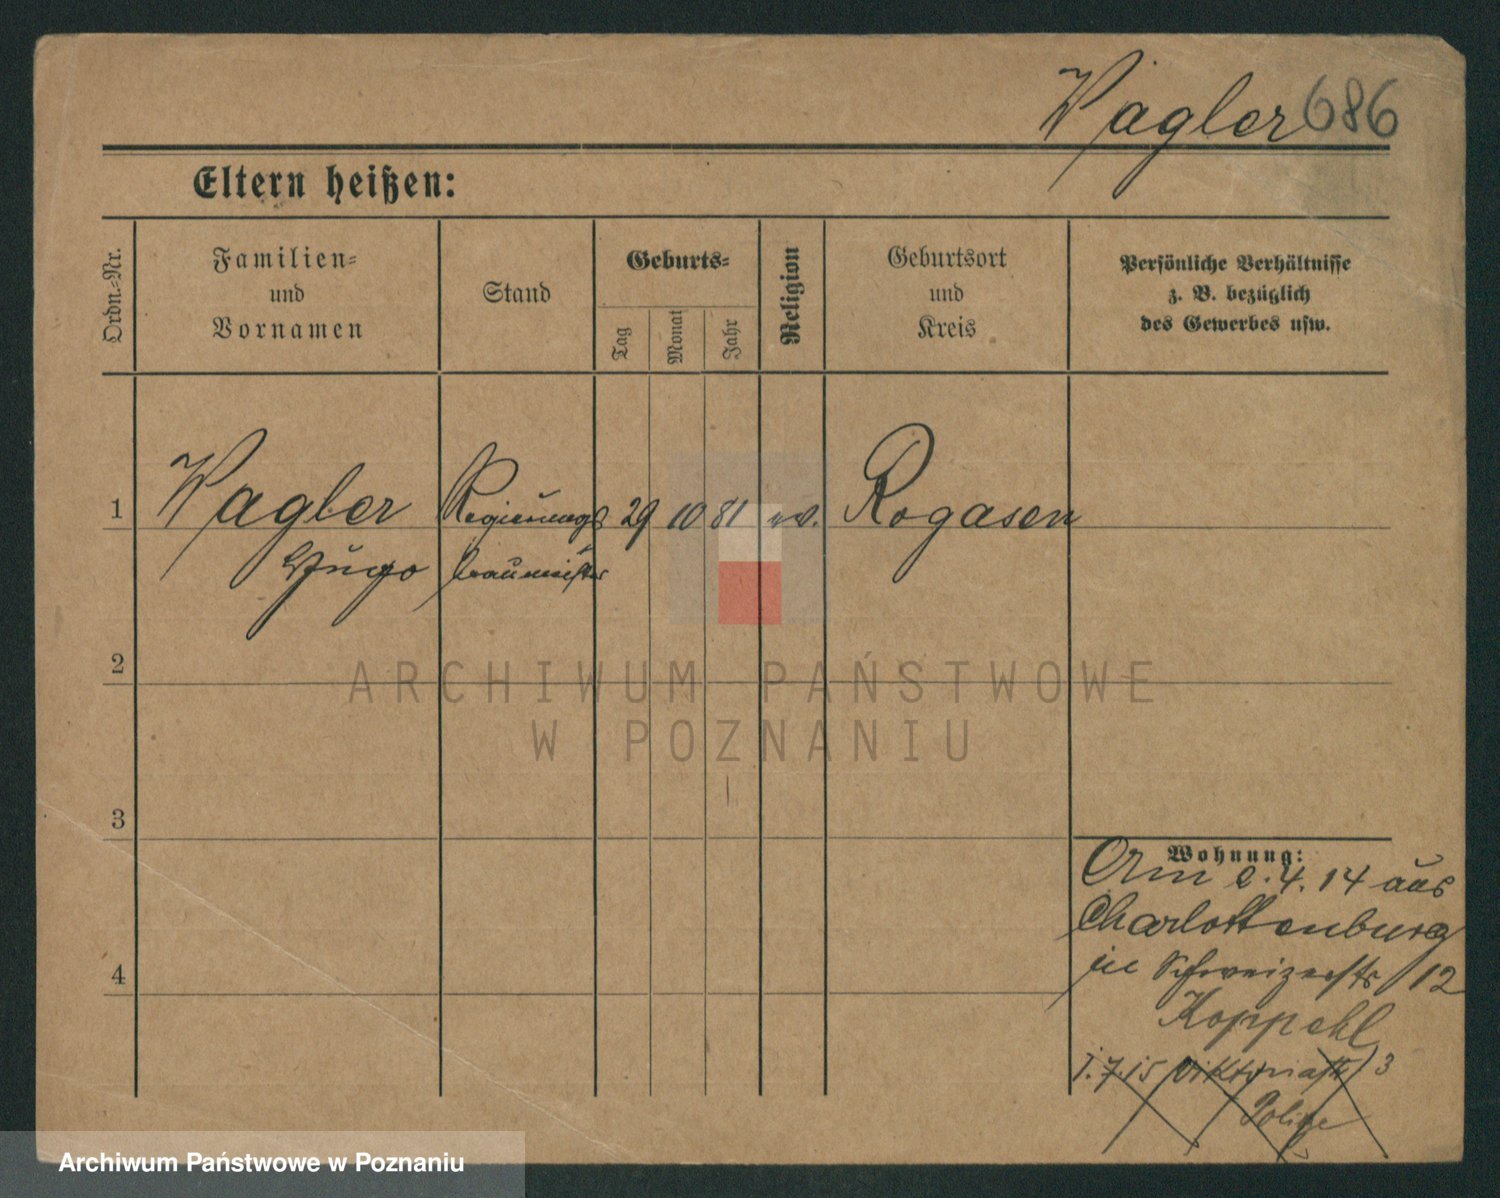 Wagler 686
Eltern heißen:
Ordn.-Nr.
Familien-
und
Vornamen
Stand
Geburts-
Tag
Monat
Jahr
Religion
Geburtsort
und
Kreis
Persönliche Verhältnisse
z. B. bezüglich
des Gewerbes usw.
1
Wagler Regierungs 29 10 81 ev. Rogasen
Hugo baumeister
2
ARCHIWUM PAŃSTWOWE
W POZNANIU
3
4
Wohnung:
Am 2.4.14 aus
Charlottenburg
in Schweizerstr 12
Koppehl
1.7.15 Viktoriastr 3
Archiwum Państwowe w Poznaniu